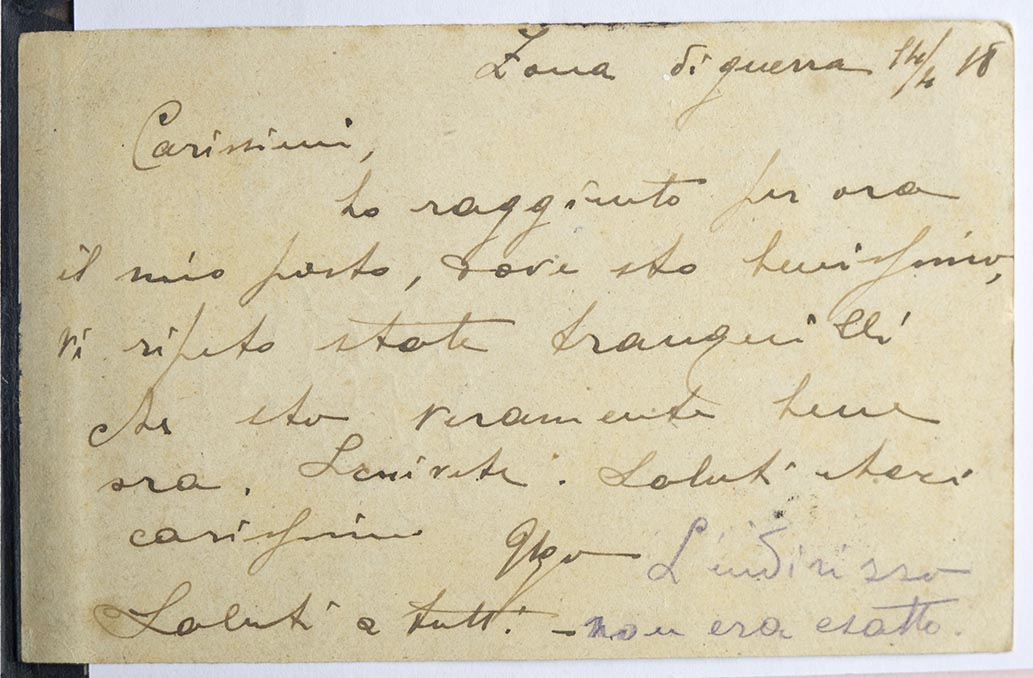 Zona di guerra 14/4 18
Carissimi,
ho raggiunto per ora
il mio posto, dove sto benissimo,
vi ripeto state tranquilli
che sto veramente bene
ora. Scrivete. Saluti
carissimi
Ugo
L'indirisso
Saluti a tutti. - non era esatto.